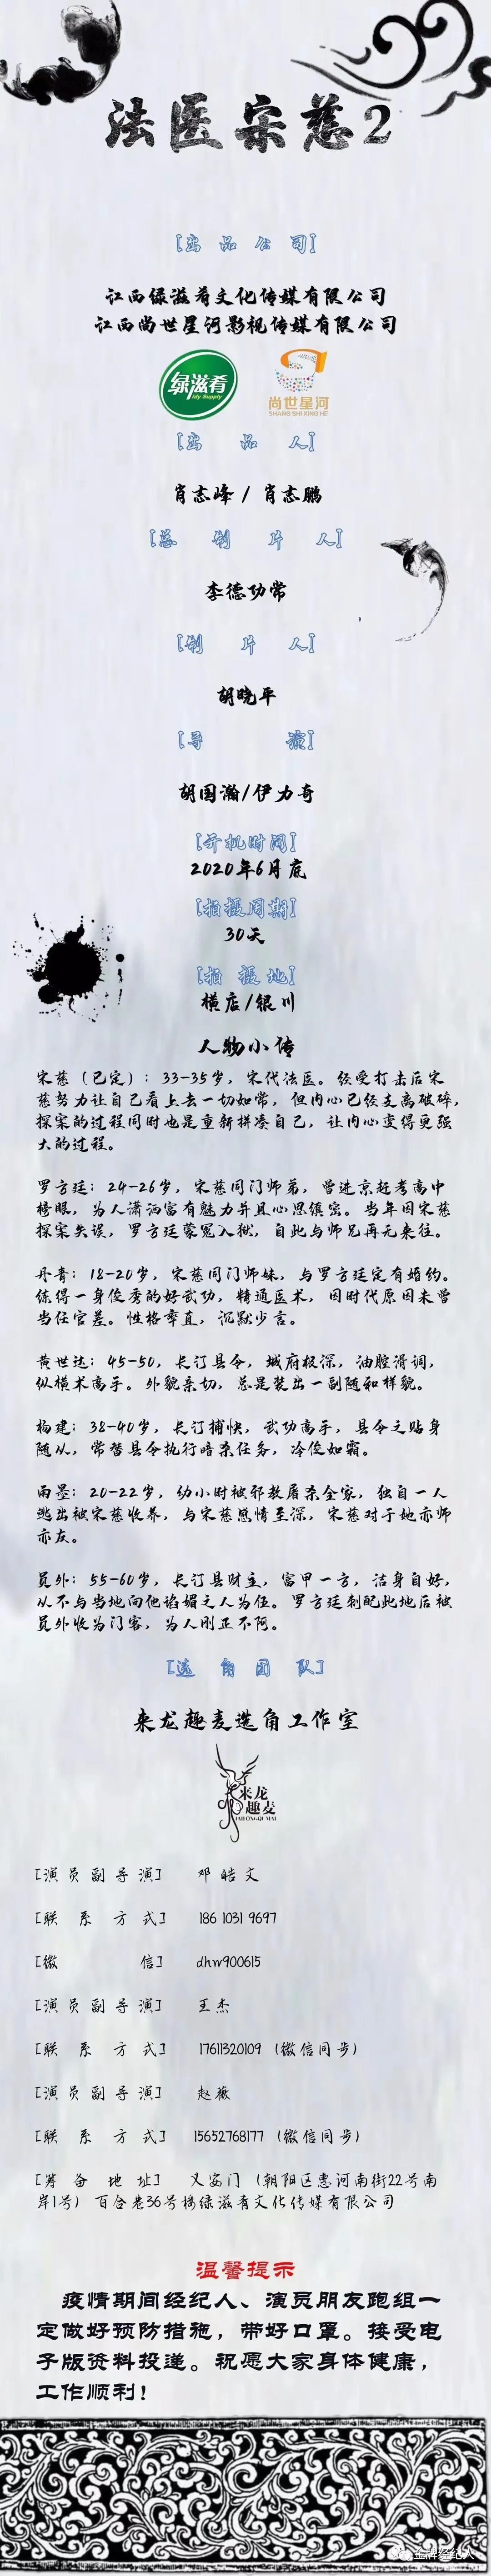 法医宋慈2
[出品公司]
江西绿滋肴文化传媒有限公司
江西尚世星河影视传媒有限公司
绿滋肴
ldy Supply
尚世星河
SHANG SHI XING HE
[出品人]
肖志峰 / 肖志鹏
[总制片人]
李德功常
[制片人]
胡晓平
[导演]
胡国瀚/伊力奇
[开机时间]
2020年6月底
[拍摄周期]
30天
[拍摄地]
横店/银川
人物小传
宋慈（已定）：33-35岁，宋代法医。经受打击后宋
慈努力让自己看上去一切如常，但内心已经支离破碎，
探案的过程同时也是重新拼凑自己，让内心变得更强
大的过程。
罗方廷：24-26岁，宋慈同门师弟，曾进京赶考高中
榜眼，为人潇洒富有魅力并且心思缜密。当年因宋慈
探案失误，罗方廷蒙冤入狱，自此与师兄再无来往。
丹青：18-20岁，宋慈同门师妹，与罗方廷定有婚约。
练得一身俊秀的好武功，精通医术，因时代原因未曾
当任官差。性格率直，沉默少言。
黄世达：45-50，长汀县令，城府极深，油腔滑调，
纵横术高手。外貌亲切，总是装出一副随和样貌。
杨建：38-40岁，长汀捕快，武功高手，县令之贴身
随从，常替县令执行暗杀任务，冷俊如霜。
雨墨：20-22岁，幼小时被邪教屠杀全家，独自一人
逃出被宋慈收养，与宋慈感情至深，宋慈对于她亦师
亦友。
员外：55-60岁，长汀县财主，富甲一方，洁身自好，
从不与当地向他谄媚之人为伍。罗方廷刺配此地后被
员外收为门客，为人刚正不阿。
[选角团队]
来龙趣麦选角工作室
来龙
趣麦
LAILONGQUMAI
[演员副导演] 邓皓文
[联系方式] 186 1031 9697
[微信] dhw900615
[演员副导演] 王杰
[联系方式] 17611320109（微信同步）
[演员副导演] 赵薇
[联系方式] 15652768177（微信同步）
[筹备地址] 义安门（朝阳区惠河南街22号南
岸1号）百合巷36号楼绿滋肴文化传媒有限公司
温馨提示
疫情期间经纪人、演员朋友跑组一
定做好预防措施，带好口罩。接受电
子版资料投递。祝愿大家身体健康，
工作顺利！
金牌经纪人